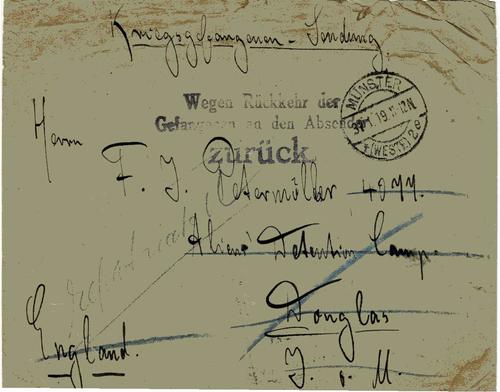 Kriegsgefangenen-Sendung
Wegen Rückkehr der
Gefangenen an den Absender
zurück
MÜNSTER
1.19.11-12V
*(WESTF) 2e
Herrn
F. J. Petermöller 4077.
Aliens' Detention Camp.
repatriated
Douglas
England.
I. o. M.